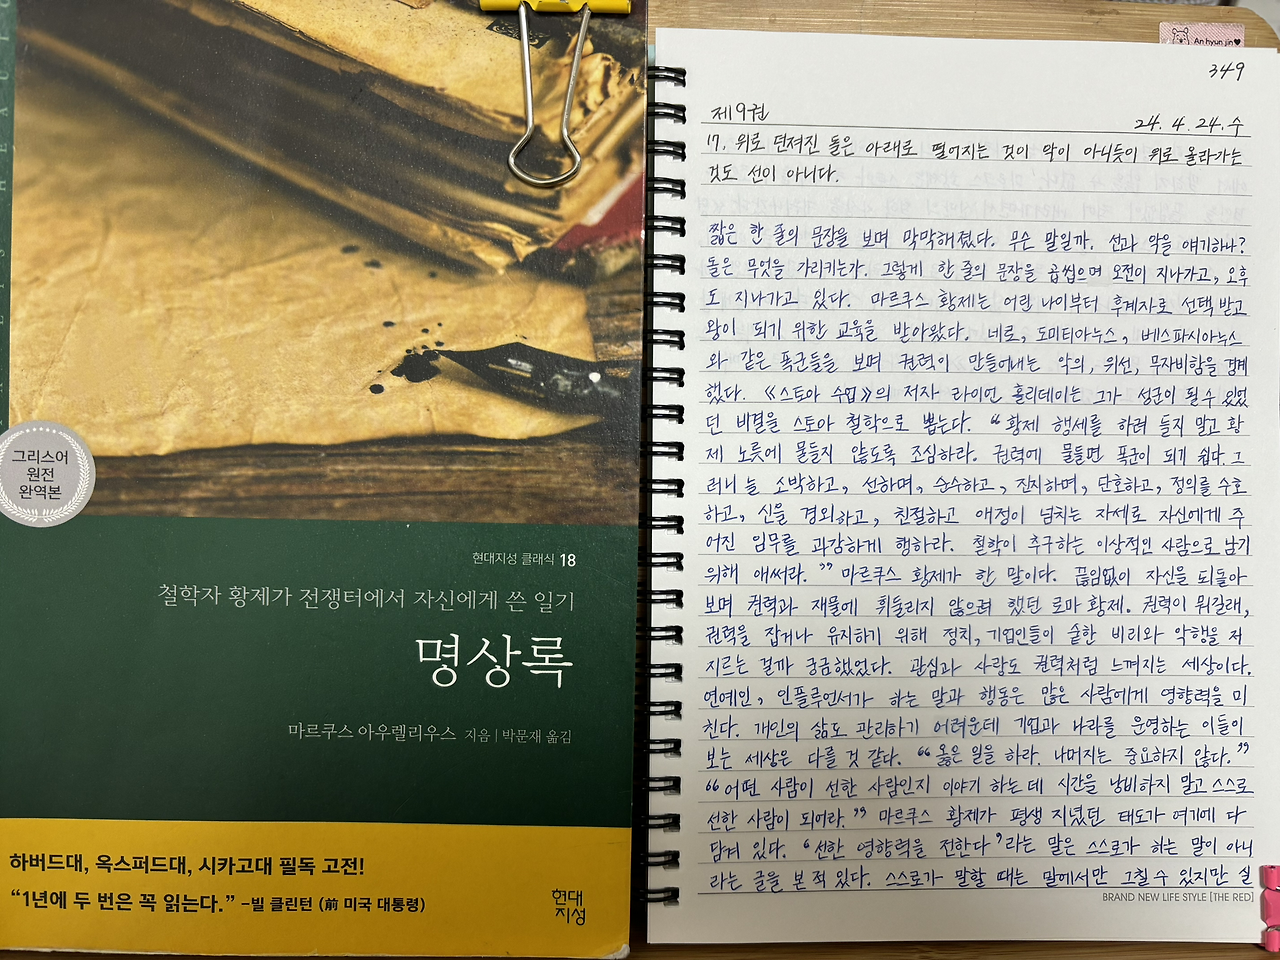 그리스어
원전
완역본
현대지성 클래식 18
철학자 황제가 전쟁터에서 자신에게 쓴 일기
명상록
마르쿠스 아우렐리우스 지음 | 박문재 옮김
하버드대, 옥스퍼드대, 시카고대 필독 고전!
“1년에 두 번은 꼭 읽는다.” –빌 클린턴 (前 미국 대통령)
현대
지성
An hyun jin♥
349
제9권
24. 4. 24. 수
17. 위로 던져진 돌은 아래로 떨어지는 것이 악이 아니듯이 위로 올라가는
것도 선이 아니다.
짧은 한 줄의 문장을 보며 막막해졌다. 무슨 말일까. 선과 악을 얘기하나?
돌은 무엇을 가리키는가. 그렇게 한 줄의 문장을 곱씹으며 오전이 지나가고, 오후
도 지나가고 있다. 마르쿠스 황제는 어린 나이부터 후계자로 선택 받고
왕이 되기 위한 교육을 받아왔다. 네로, 도미티아누스, 베스파시아누스
와 같은 폭군들을 보며 권력이 만들어내는 악의, 위선, 무자비함을 경계
했다. 《스토아 수업》의 저자 라이언 홀리데이는 그가 성군이 될 수 있었
던 비결을 스토아 철학으로 뽑는다. “황제 행세를 하려 들지 말고 황
제 노릇에 물들지 않도록 조심하라. 권력에 물들면 폭군이 되기 쉽다. 그
러니 늘 소박하고, 선하며, 순수하고, 진지하며, 단호하고, 정의를 수호
하고, 신을 경외하고, 친절하고 애정이 넘치는 자세로 자신에게 주
어진 임무를 과감하게 행하라. 철학이 추구하는 이상적인 사람으로 남기
위해 애써라.” 마르쿠스 황제가 한 말이다. 끊임없이 자신을 되돌아
보며 권력과 재물에 휘둘리지 않으려 했던 로마 황제. 권력이 뭐길래,
권력을 잡거나 유지하기 위해 정치, 기업인들이 숱한 비리와 악행을 저
지르는 걸까 궁금했었다. 관심과 사랑도 권력처럼 느껴지는 세상이다.
연예인, 인플루언서가 하는 말과 행동은 많은 사람에게 영향력을 미
친다. 개인의 삶도 관리하기 어려운데 기업과 나라를 운영하는 이들이
보는 세상은 다를 것 같다. “옳은 일을 하라. 나머지는 중요하지 않다.”
“어떤 사람이 선한 사람인지 이야기 하는 데 시간을 낭비하지 말고 스스로
선한 사람이 되어라.” 마르쿠스 황제가 평생 지녔던 태도가 여기에 다
담겨 있다. ‘선한 영향력을 전한다’라는 말은 스스로가 하는 말이 아니
라는 글을 본 적 있다. 스스로가 말할 때는 말에서만 그칠 수 있지만 실
BRAND NEW LIFE STYLE [THE RED]